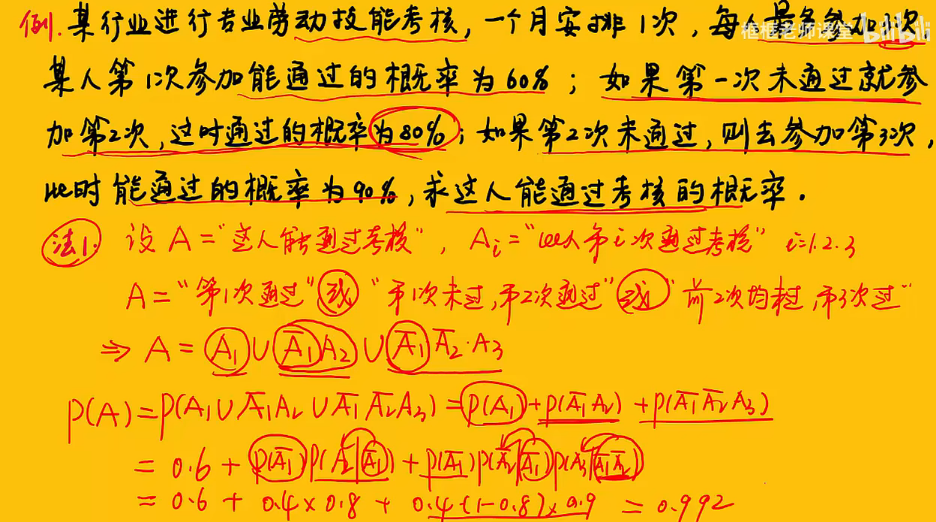 例. 某行业进行专业劳动技能考核，一个月安排1次，每人最多参加3次，
框框老师课堂 bilibili
某人第1次参加能通过的概率为60%；如果第一次未通过就参
加第2次，这时通过的概率为80%；如果第2次未通过，则去参加第3次，
此时能通过的概率为90%，求这人能通过考核的概率．
法1. 设 A="这人能通过考核"，Aᵢ="此人第i次通过考核" i=1.2.3
A="第1次通过"或"第1次未过,第2次通过"或"前2次均未过,第3次过"
⇒ A = A₁∪A̅₁A₂∪A̅₁A̅₂·A₃
P(A)=P(A₁∪A̅₁A₂∪A̅₁A̅₂A₃)=P(A₁)+P(A̅₁A₂)+P(A̅₁A̅₂A₃)
= 0.6 + P(A̅₁)P(A₂|A̅₁)+P(A̅₁)P(A̅₂|A̅₁)P(A₃|A̅₁A̅₂)
= 0.6 + 0.4×0.8 + 0.4·(1-0.8)×0.9 = 0.992